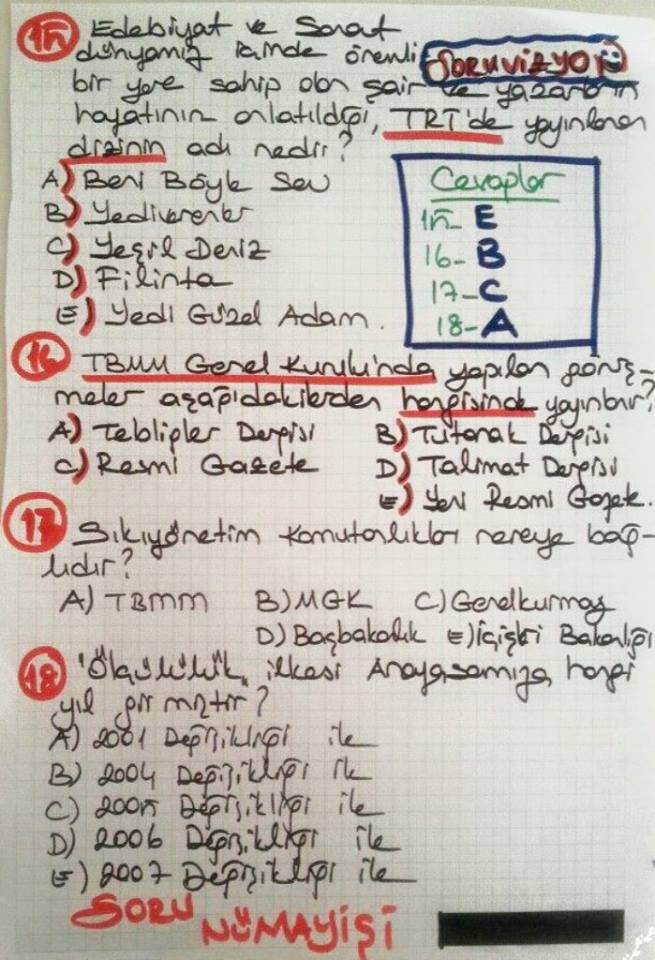 15 Edebiyat ve Sanat
dünyamız içinde önemli SORUVİZYON
bir yere sahip olan şair ve yazarların
hayatının anlatıldığı, TRT'de yayınlanan
dizinin adı nedir?
A) Beni Böyle Sev
B) Yediverenler
C) Yeşil Deniz
D) Filinta
E) Yedi Güzel Adam.
Cevaplar
15- E
16- B
17- C
18- A
16 TBMM Genel Kurulu'nda yapılan görüş-
meler aşağıdakilerden hangisinde yayınlanır?
A) Tebliğler Dergisi B) Tutanak Dergisi
C) Resmi Gazete D) Talimat Dergisi
E) Yeni Resmi Gazete.
17 Sıkıyönetim Komutanlıkları nereye bağ-
lıdır?
A) TBMM B) MGK C) Genelkurmay
D) Başbakanlık E) İçişleri Bakanlığı
18 "Ölçülülük" ilkesi Anayasamıza hangi
yıl girmiştir?
A) 2001 Değişikliği ile
B) 2004 Değişikliği ile
C) 2005 Değişikliği ile
D) 2006 Değişikliği ile
E) 2007 Değişikliği ile
SORU
NÜMAYİŞİ